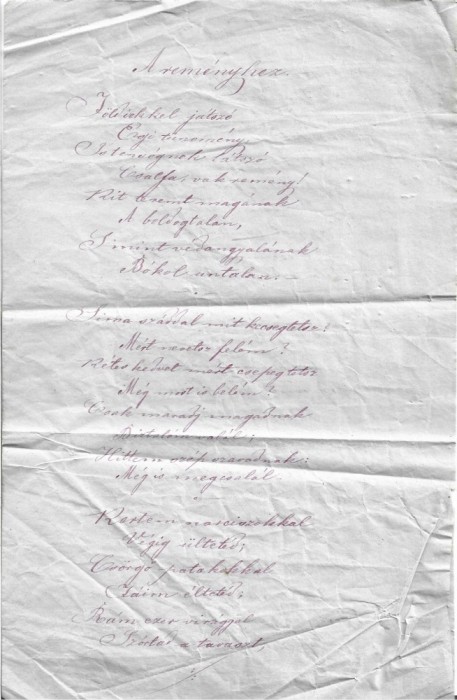 A reményhez.
Földiekkel játszó
Égi tünemény,
Istenségnek látszó
Csalfa, vak remény!
Kit teremt magának
A boldogtalan,
S mint védangyalának
Bókol untalan. –
Sima száddal mit kecsegtetsz?
Mért nevetsz felém?
Kétes kedvet mért csepegtetsz
Még most is belém?
Csak maradj magadnak
Biztatóm valál;
Hittem szép szavadnak:
Mégis megcsalál.
Kertem narciszokkal
Végig ültetéd;
Csörgő patakokkal
Fáim éltetéd;
Rám ezer virággal
Szórtad a tavaszt,